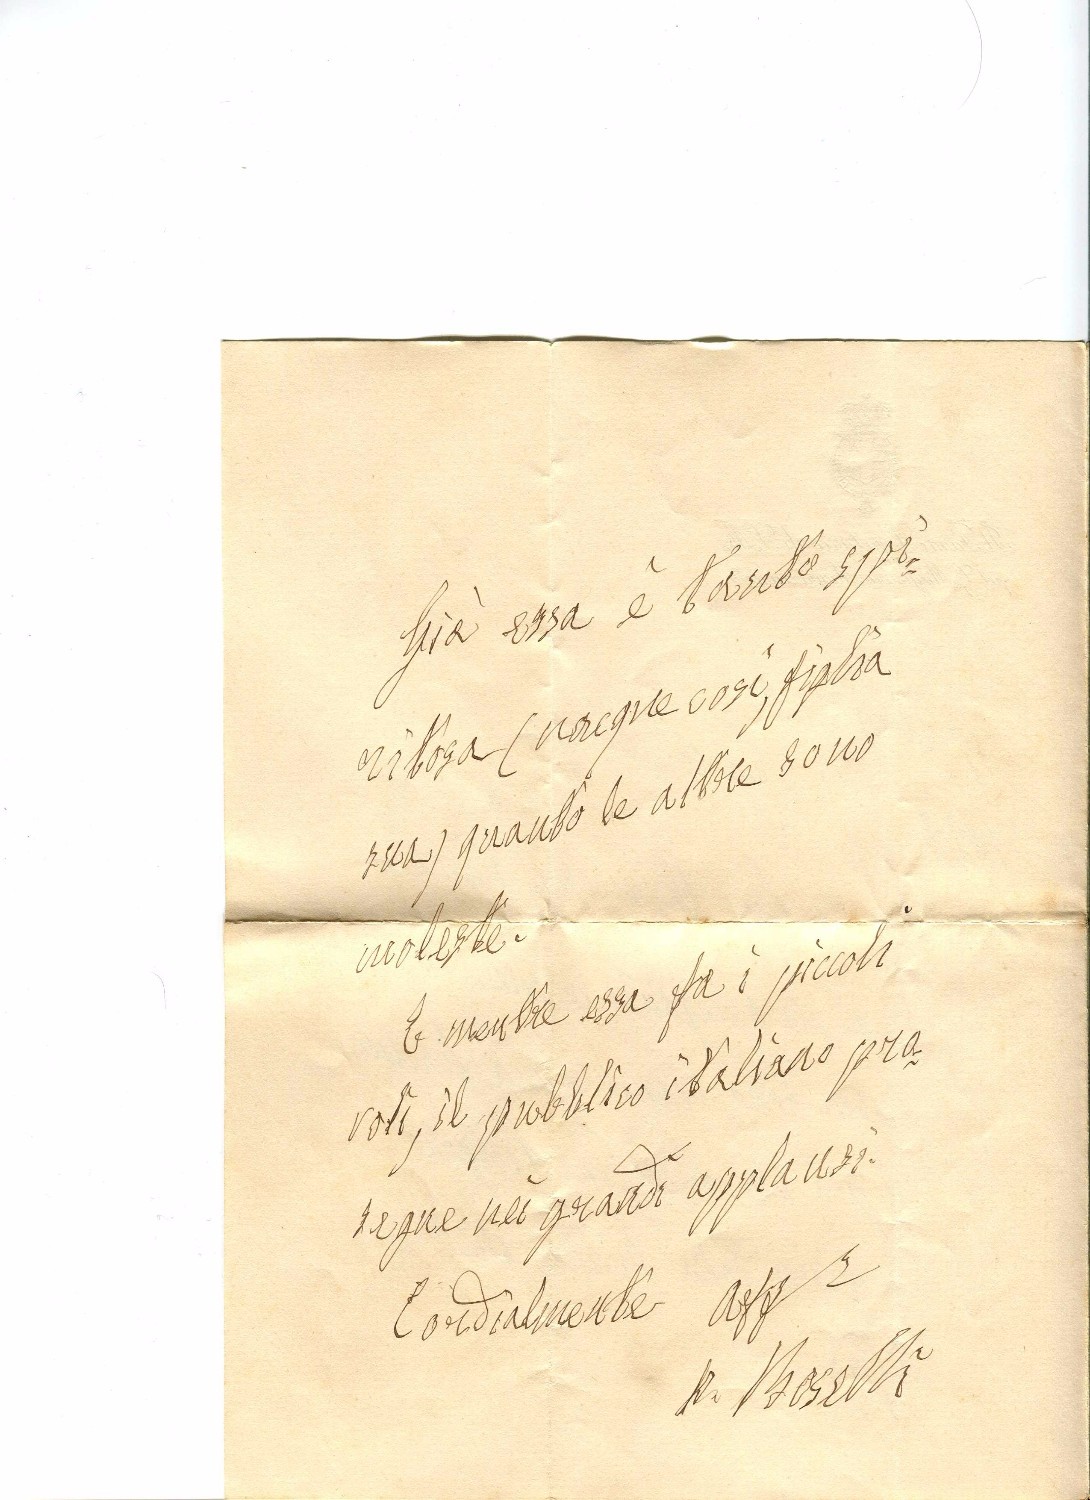 Già essa è tanto spi=
ritosa (nacque così, figlia
sua) quanto le altre sono
moleste.
E mentre essa fa i piccoli
voli, il pubblico italiano pro=
segue nei grandi applausi.
Cordialmente aff
P. Boselli